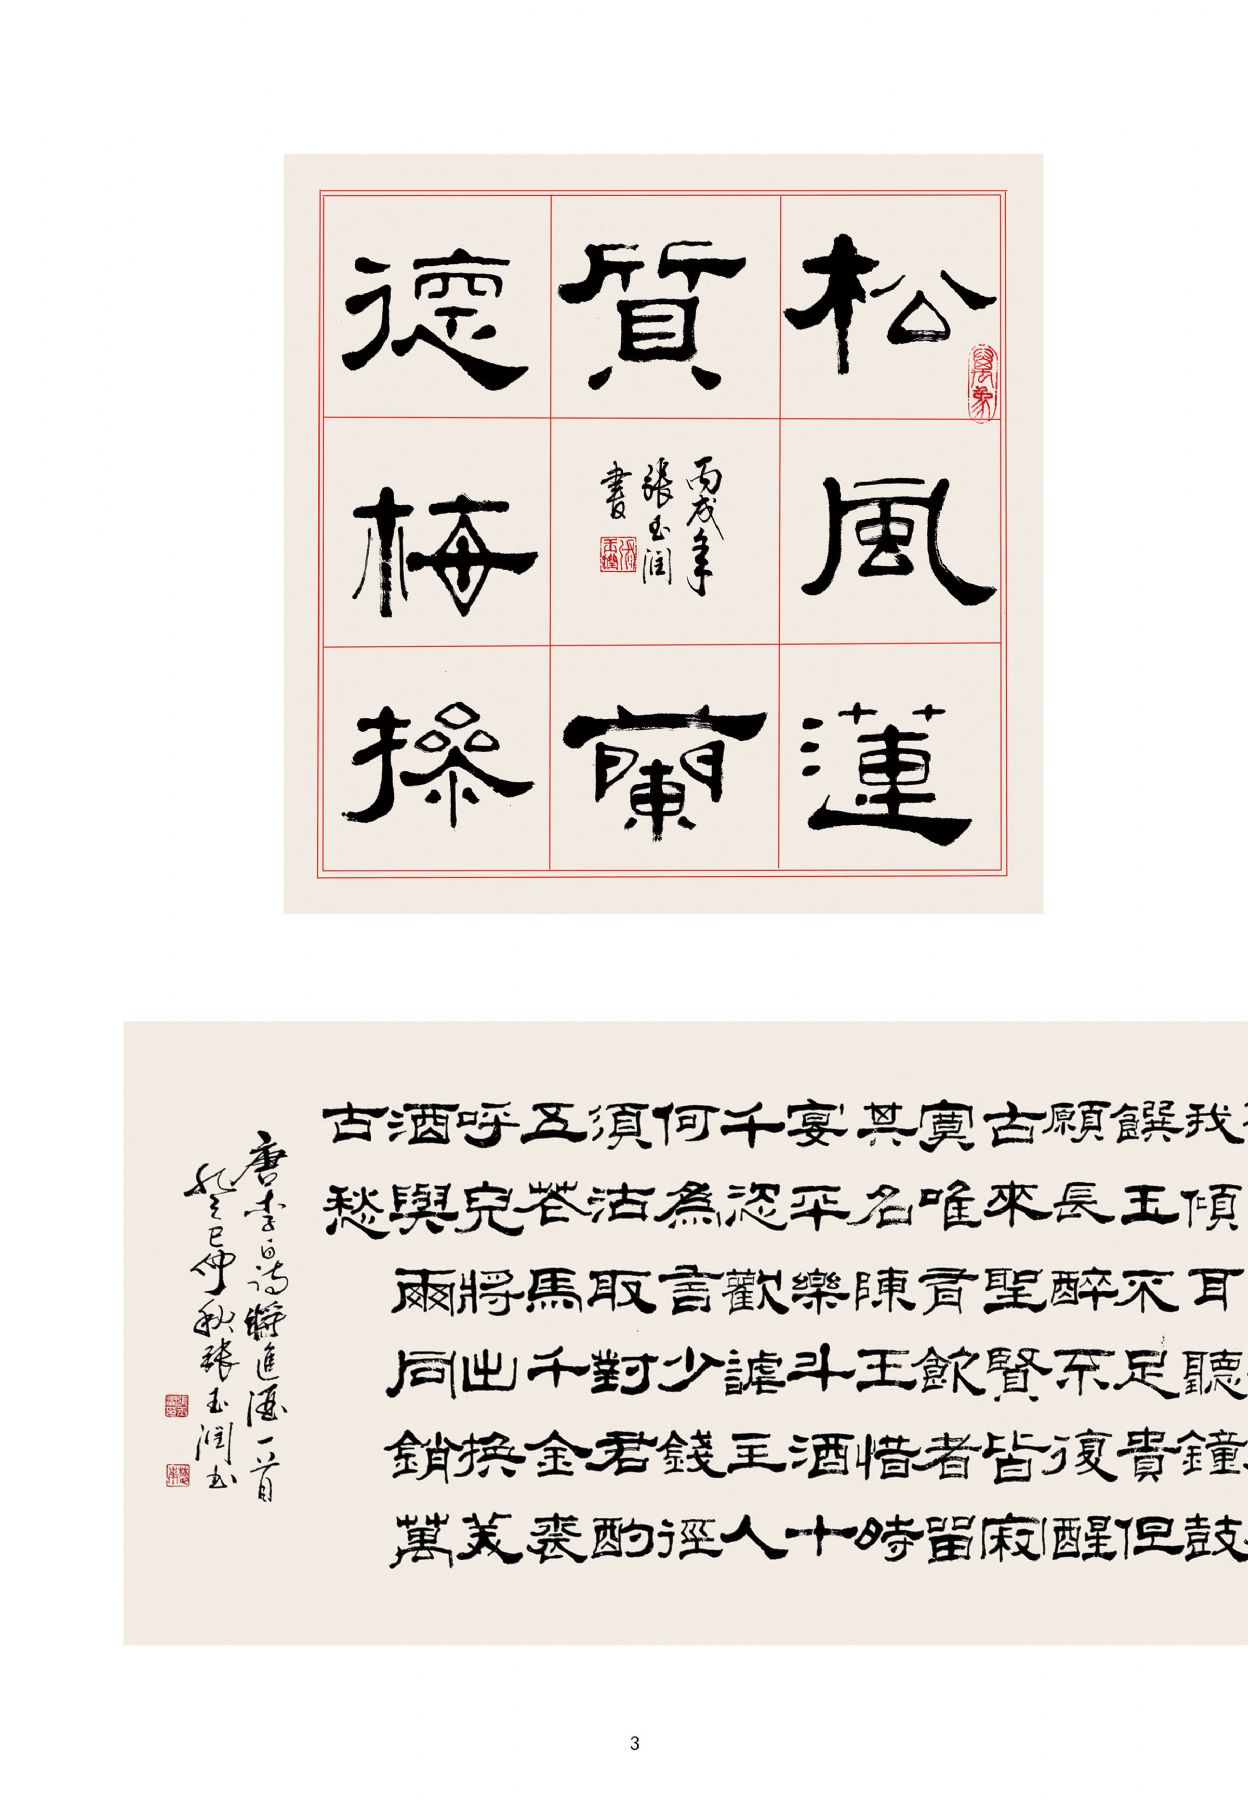 松風蓮
質蘭
德梅操
丙戌年
張玉潤
書
萬象
我傾耳聽鐘鼓
饌玉不足貴但
願長醉不復醒
古來聖賢皆寂
寞唯有飲者留
其名陳王惜時
宴平樂斗酒十
千恣歡謔主人
何為言少錢徑
須沽取對君酌
五花馬千金裘
呼兒將出換美
酒與爾同銷萬
古愁
唐李白詩將進酒一首
癸巳仲秋張玉潤书
3